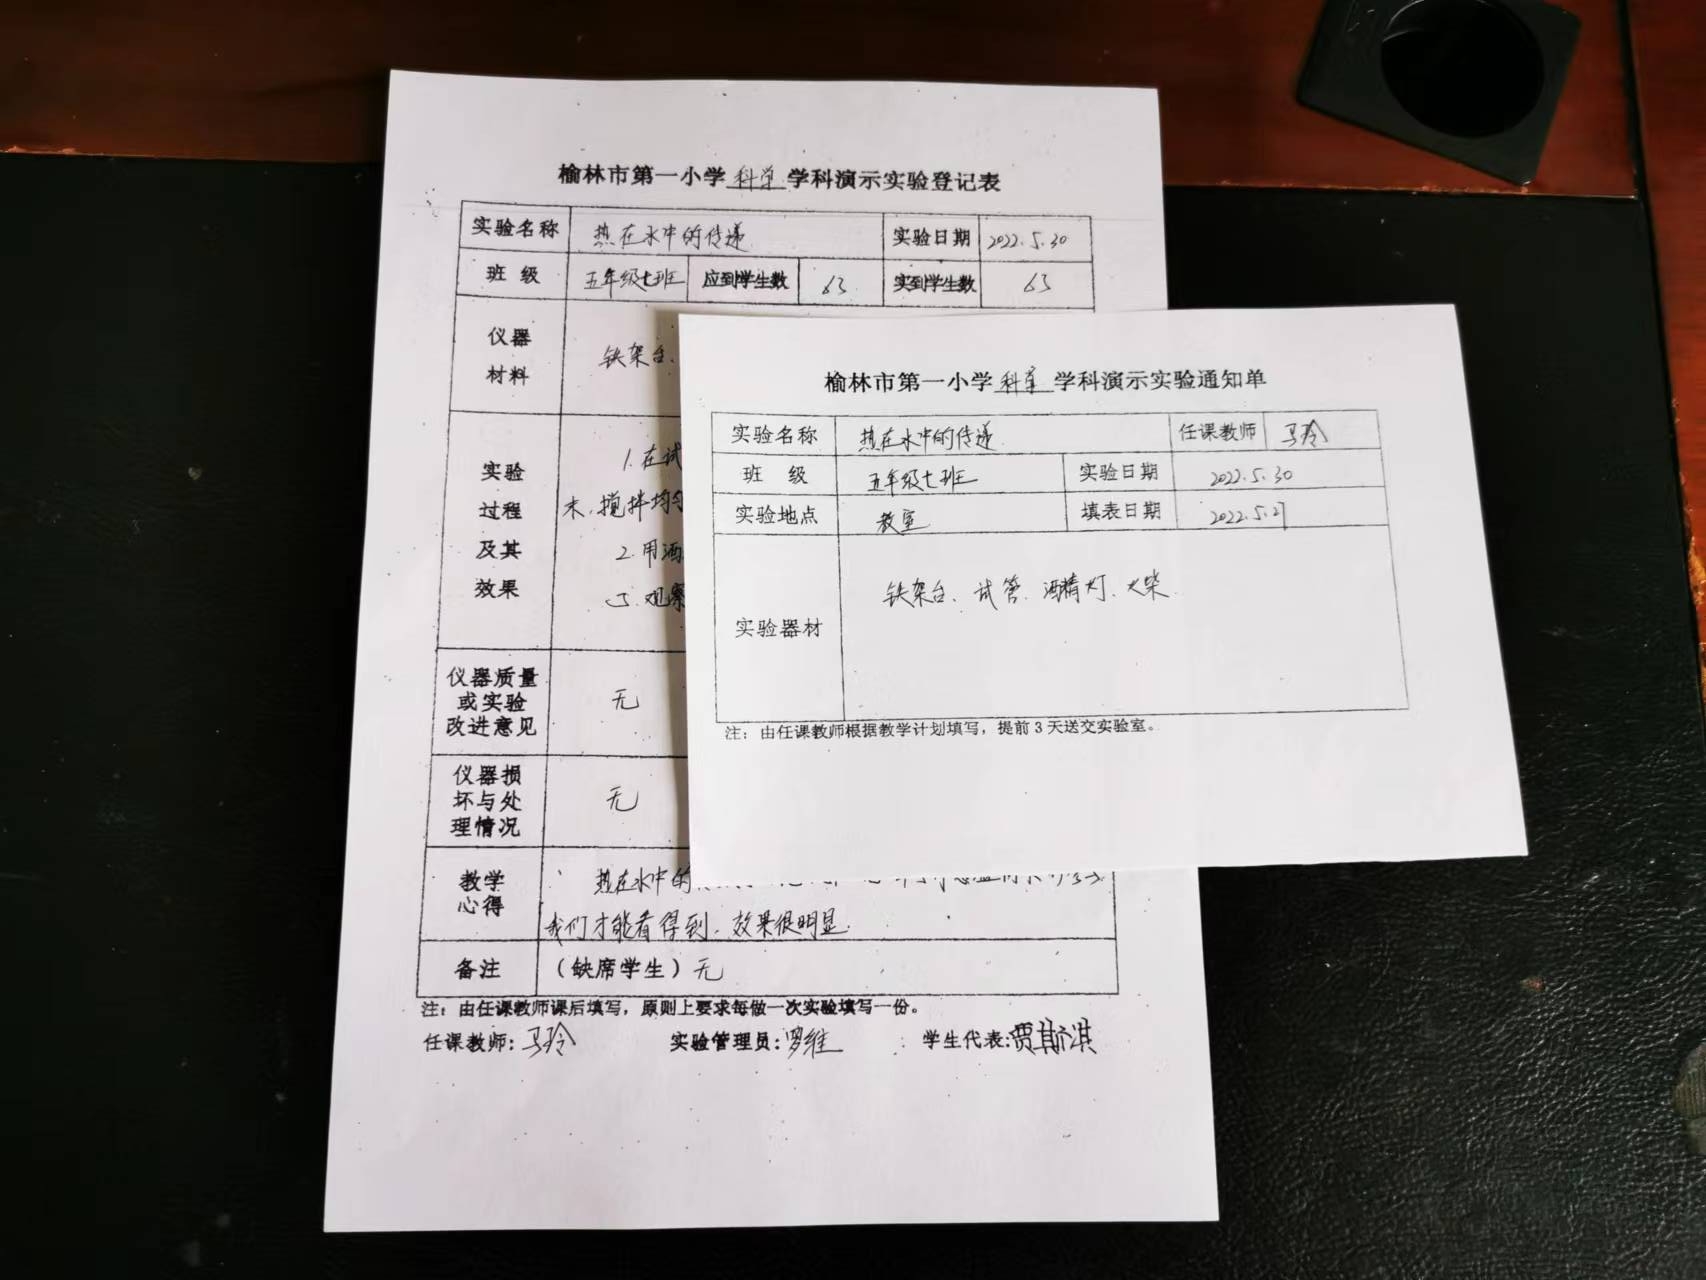 榆林市第一小学 科学 学科演示实验登记表
实验名称 热在水中的传递 实验日期 2022.5.30
班 级 五年级七班 应到学生数 63 实到学生数 63
仪器
材料
铁架台、
实验
过程
及其
效果
1.在试
末,搅拌均匀
2.用酒
3.观察
仪器质量
或实验
改进意见
无
仪器损
坏与处
理情况
无
教学
心得
热在水中的
我们才能看得到,效果很明显.
备注 (缺席学生)无
注:由任课教师课后填写,原则上要求每做一次实验填写一份。
任课教师:马玲 实验管理员:罗维 学生代表:贾斯淇
榆林市第一小学 科学 学科演示实验通知单
实验名称 热在水中的传递 任课教师 马玲
班 级 五年级七班 实验日期 2022.5.30
实验地点 教室 填表日期 2022.5.27
实验器材 铁架台、试管、酒精灯、火柴
注:由任课教师根据教学计划填写,提前3天送交实验室。